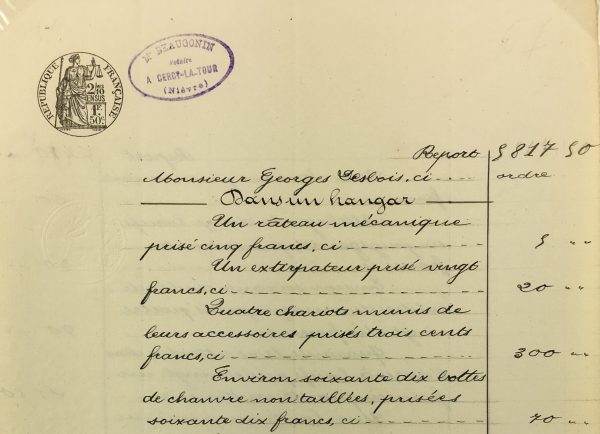 RÉPUBLIQUE FRANÇAISE
2/10mes
EN SUS
1F.
50c.
Me BEAUGONIN
Notaire
A CERCY-LA-TOUR
(Nièvre)
Report 5817 50
Monsieur Georges Desbois, ci ordre
Dans un hangar
Un râteau mécanique
prisé cinq francs, ci 5 " "
Un extirpateur prisé vingt
francs, ci 20 " "
Quatre chariots munis de
leurs accessoires prisés trois cents
francs, ci 300 " "
Environ soixante dix bottes
de chanvre non taillées, prisées
soixante dix francs, ci 70 " "